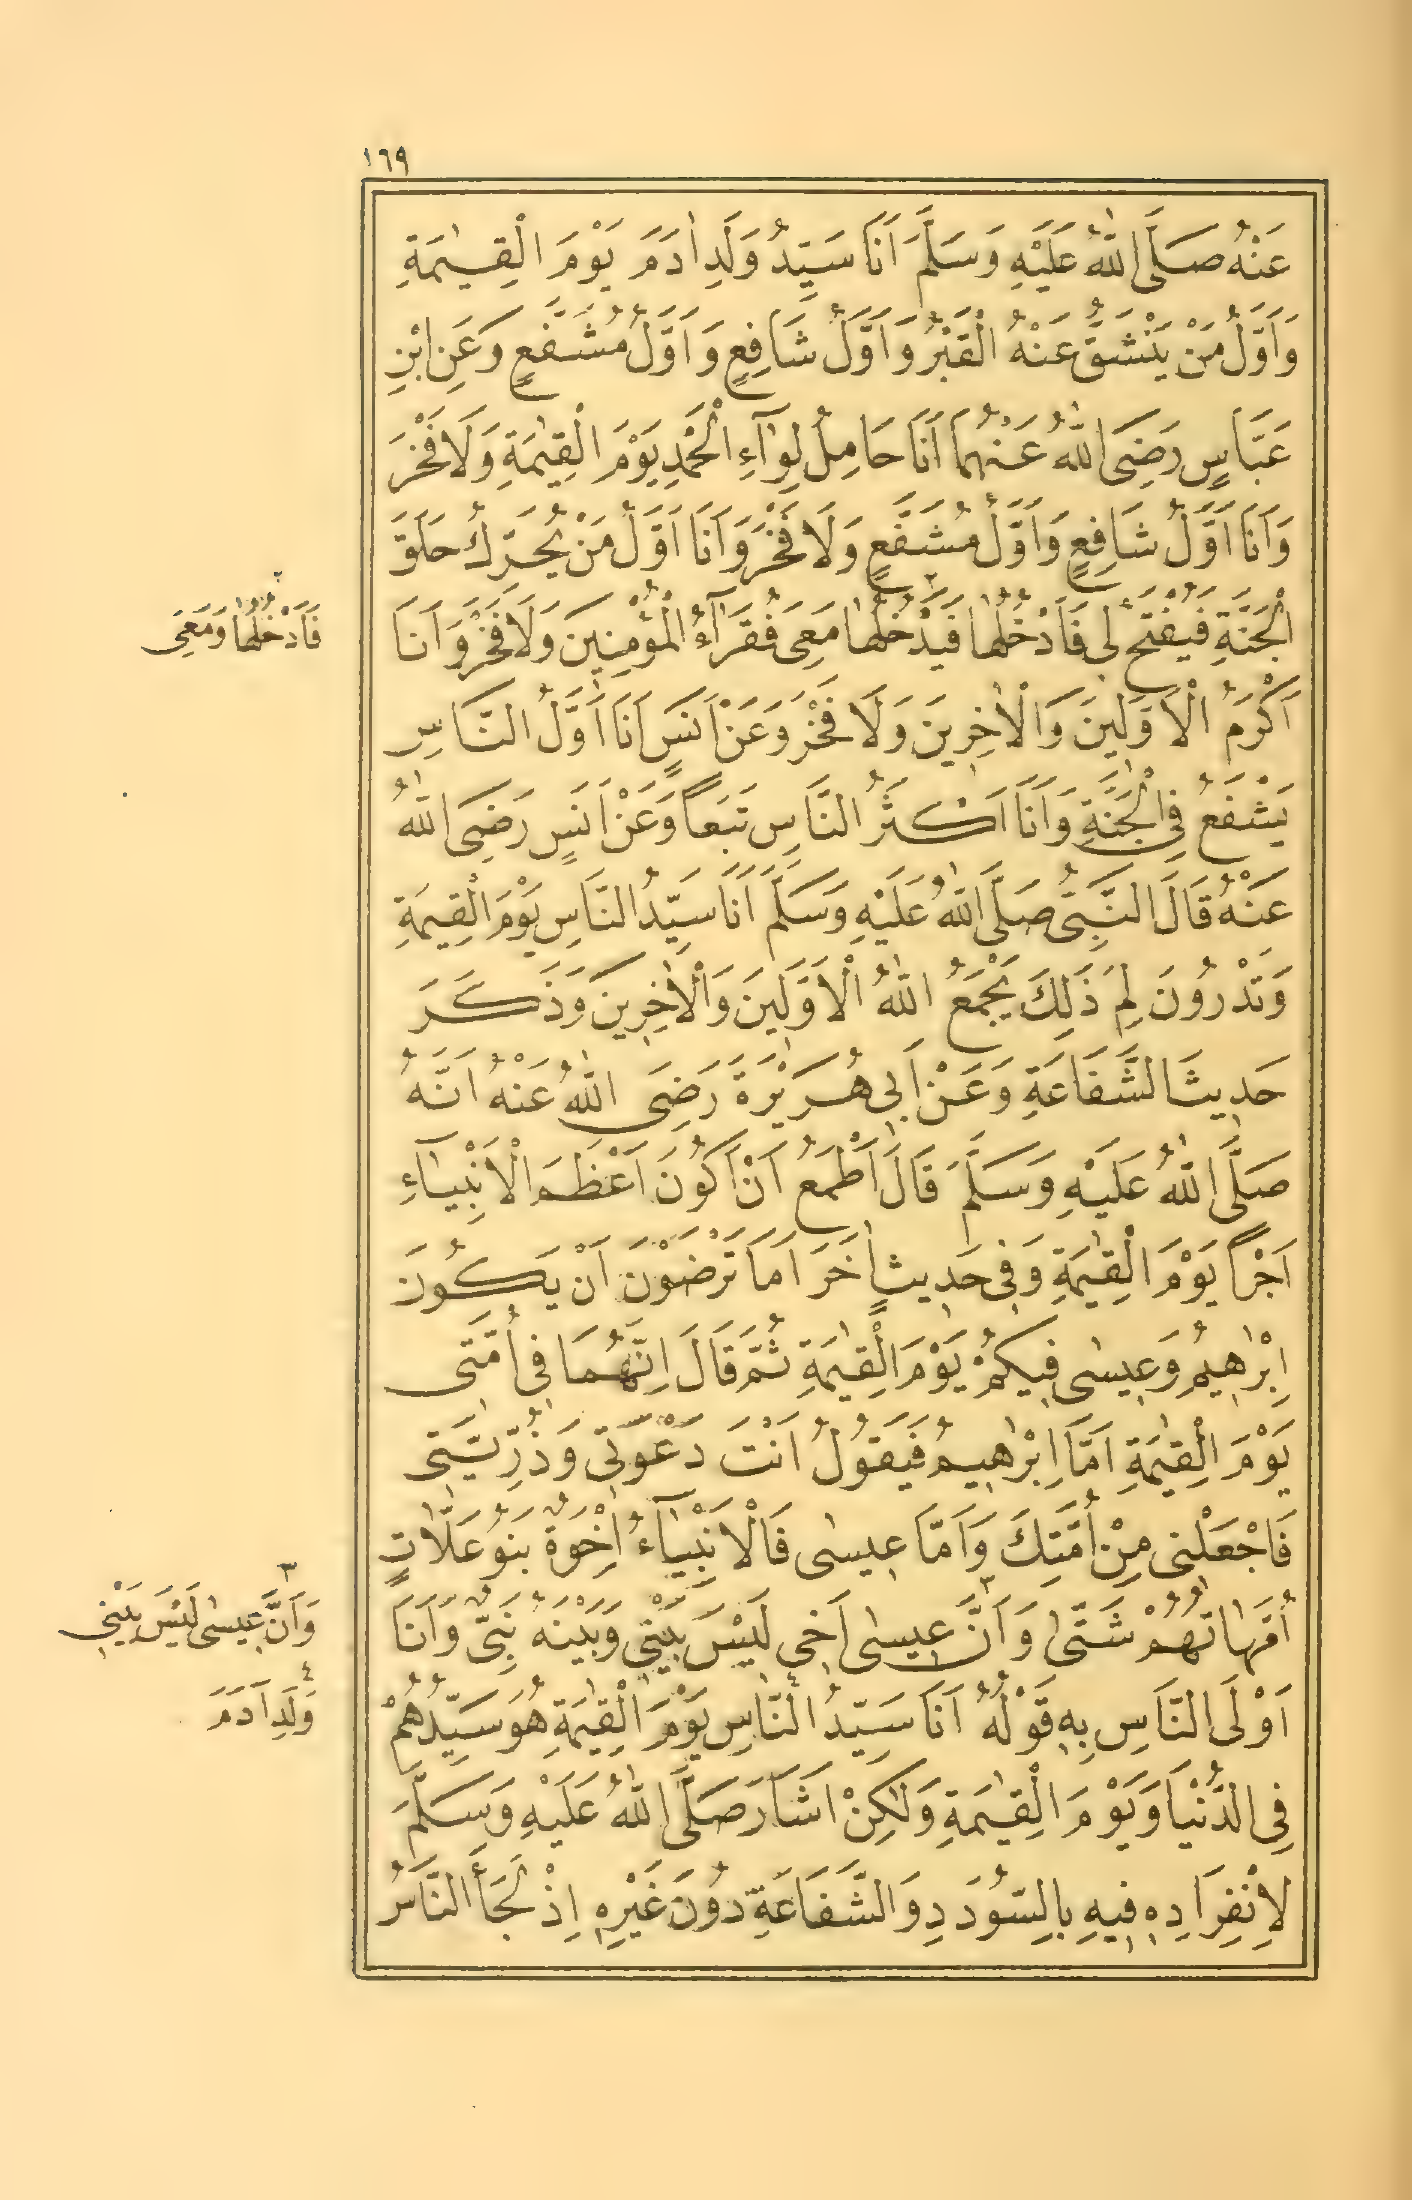 ١٦٩
عَنْهُ صَلَّى اللّٰهُ عَلَيْهِ وَسَلَّمَ اَنَا سَيِّدُ وَلَدِ اٰدَمَ يَوْمَ الْقِيٰمَةِ
وَاَوَّلُ مَنْ يَنْشَقُّ عَنْهُ الْقَبْرُ وَاَوَّلُ شَافِعٍ وَاَوَّلُ مُشَفَّعٍ وَعَنِ ابْنِ
عَبَّاسٍ رَضِىَ اللّٰهُ عَنْهُمَا اَنَا حَامِلُ لِوَآءِ الْحَمْدِ يَوْمَ الْقِيٰمَةِ وَلَا فَخْرَ
وَاَنَا اَوَّلُ شَافِعٍ وَاَوَّلُ مُشَفَّعٍ وَلَا فَخْرَ وَاَنَا اَوَّلُ مَنْ يُحَرِّكُ حَلَقَ
الْجَنَّةِ فَيُفْتَحُ لِى فَاَدْخُلُهَا فَيَدْخُلُهَا مَعِىَ فُقَرَآءُ الْمُؤْمِنِينَ وَلَا فَخْرَ وَاَنَا
٢
فَاَدْخُلُهَا وَمَعِىَ
اَكْرَمُ الْاَوَّلِينَ وَالْاٰخِرِينَ وَلَا فَخْرَ وَعَنْ اَنَسٍ اَنَا اَوَّلُ النَّاسِ
يَشْفَعُ فِى الْجَنَّةِ وَاَنَا اَكْثَرُ النَّاسِ تَبَعاً وَعَنْ اَنَسٍ رَضِىَ اللّٰهُ
عَنْهُ قَالَ النَّبِىُّ صَلَّى اللّٰهُ عَلَيْهِ وَسَلَّمَ اَنَا سَيِّدُ النَّاسِ يَوْمَ الْقِيٰمَةِ
وَتَدْرُونَ لِمَ ذَلِكَ يَجْمَعُ اللّٰهُ الْاَوَّلِينَ وَالْاٰخِرِينَ وَذَكَرَ
حَدِيثَ الشَّفَاعَةِ وَعَنْ اَبِى هُرَيْرَةَ رَضِىَ اللّٰهُ عَنْهُ اَنَّهُ
صَلَّى اللّٰهُ عَلَيْهِ وَسَلَّمَ قَالَ اَطْمَعُ اَنْ اَكُونَ اَعْظَمَ الْاَنْبِيَآءِ
اَجْراً يَوْمَ الْقِيٰمَةِ وَفِى حَدِيثٍ اٰخَرَ اَمَا تَرْضَوْنَ اَنْ يَكُونَ
اِبْرٰهِيمُ وَعِيسٰى فِيكُمْ يَوْمَ الْقِيٰمَةِ ثُمَّ قَالَ اِنَّهُمَا فِى اُمَّتِى
يَوْمَ الْقِيٰمَةِ اَمَّا اِبْرٰهِيمُ فَيَقُولُ اَنْتَ دَعْوَتِى وَذُرِّيَّتِى
فَاجْعَلْنِى مِنْ اُمَّتِكَ وَاَمَّا عِيسٰى فَالْاَنْبِيَآءُ اِخْوَةٌ بَنُو عَلَّاتٍ
اُمَّهَاتُهُمْ شَتّٰى وَاَنَّ عِيسٰى اَخِى لَيْسَ بَيْنِى وَبَيْنَهُ نَبِىٌّ وَاَنَا
٣
وَاَنَّ عِيسٰى لَيْسَ بَيْنِى
اَوْلَى النَّاسِ بِهِ قَوْلُهُ اَنَا سَيِّدُ النَّاسِ يَوْمَ الْقِيٰمَةِ هُوَ سَيِّدُهُمْ
٤
وَلَدِ اٰدَمَ
فِى الدُّنْيَا وَيَوْمَ الْقِيٰمَةِ وَلٰكِنْ اَشَارَ صَلَّى اللّٰهُ عَلَيْهِ وَسَلَّمَ
لِانْفِرَادِهِ فِيهِ بِالسُّودَدِ وَالشَّفَاعَةِ دُونَ غَيْرِهِ اِذْ لَجَأَ النَّاسُ